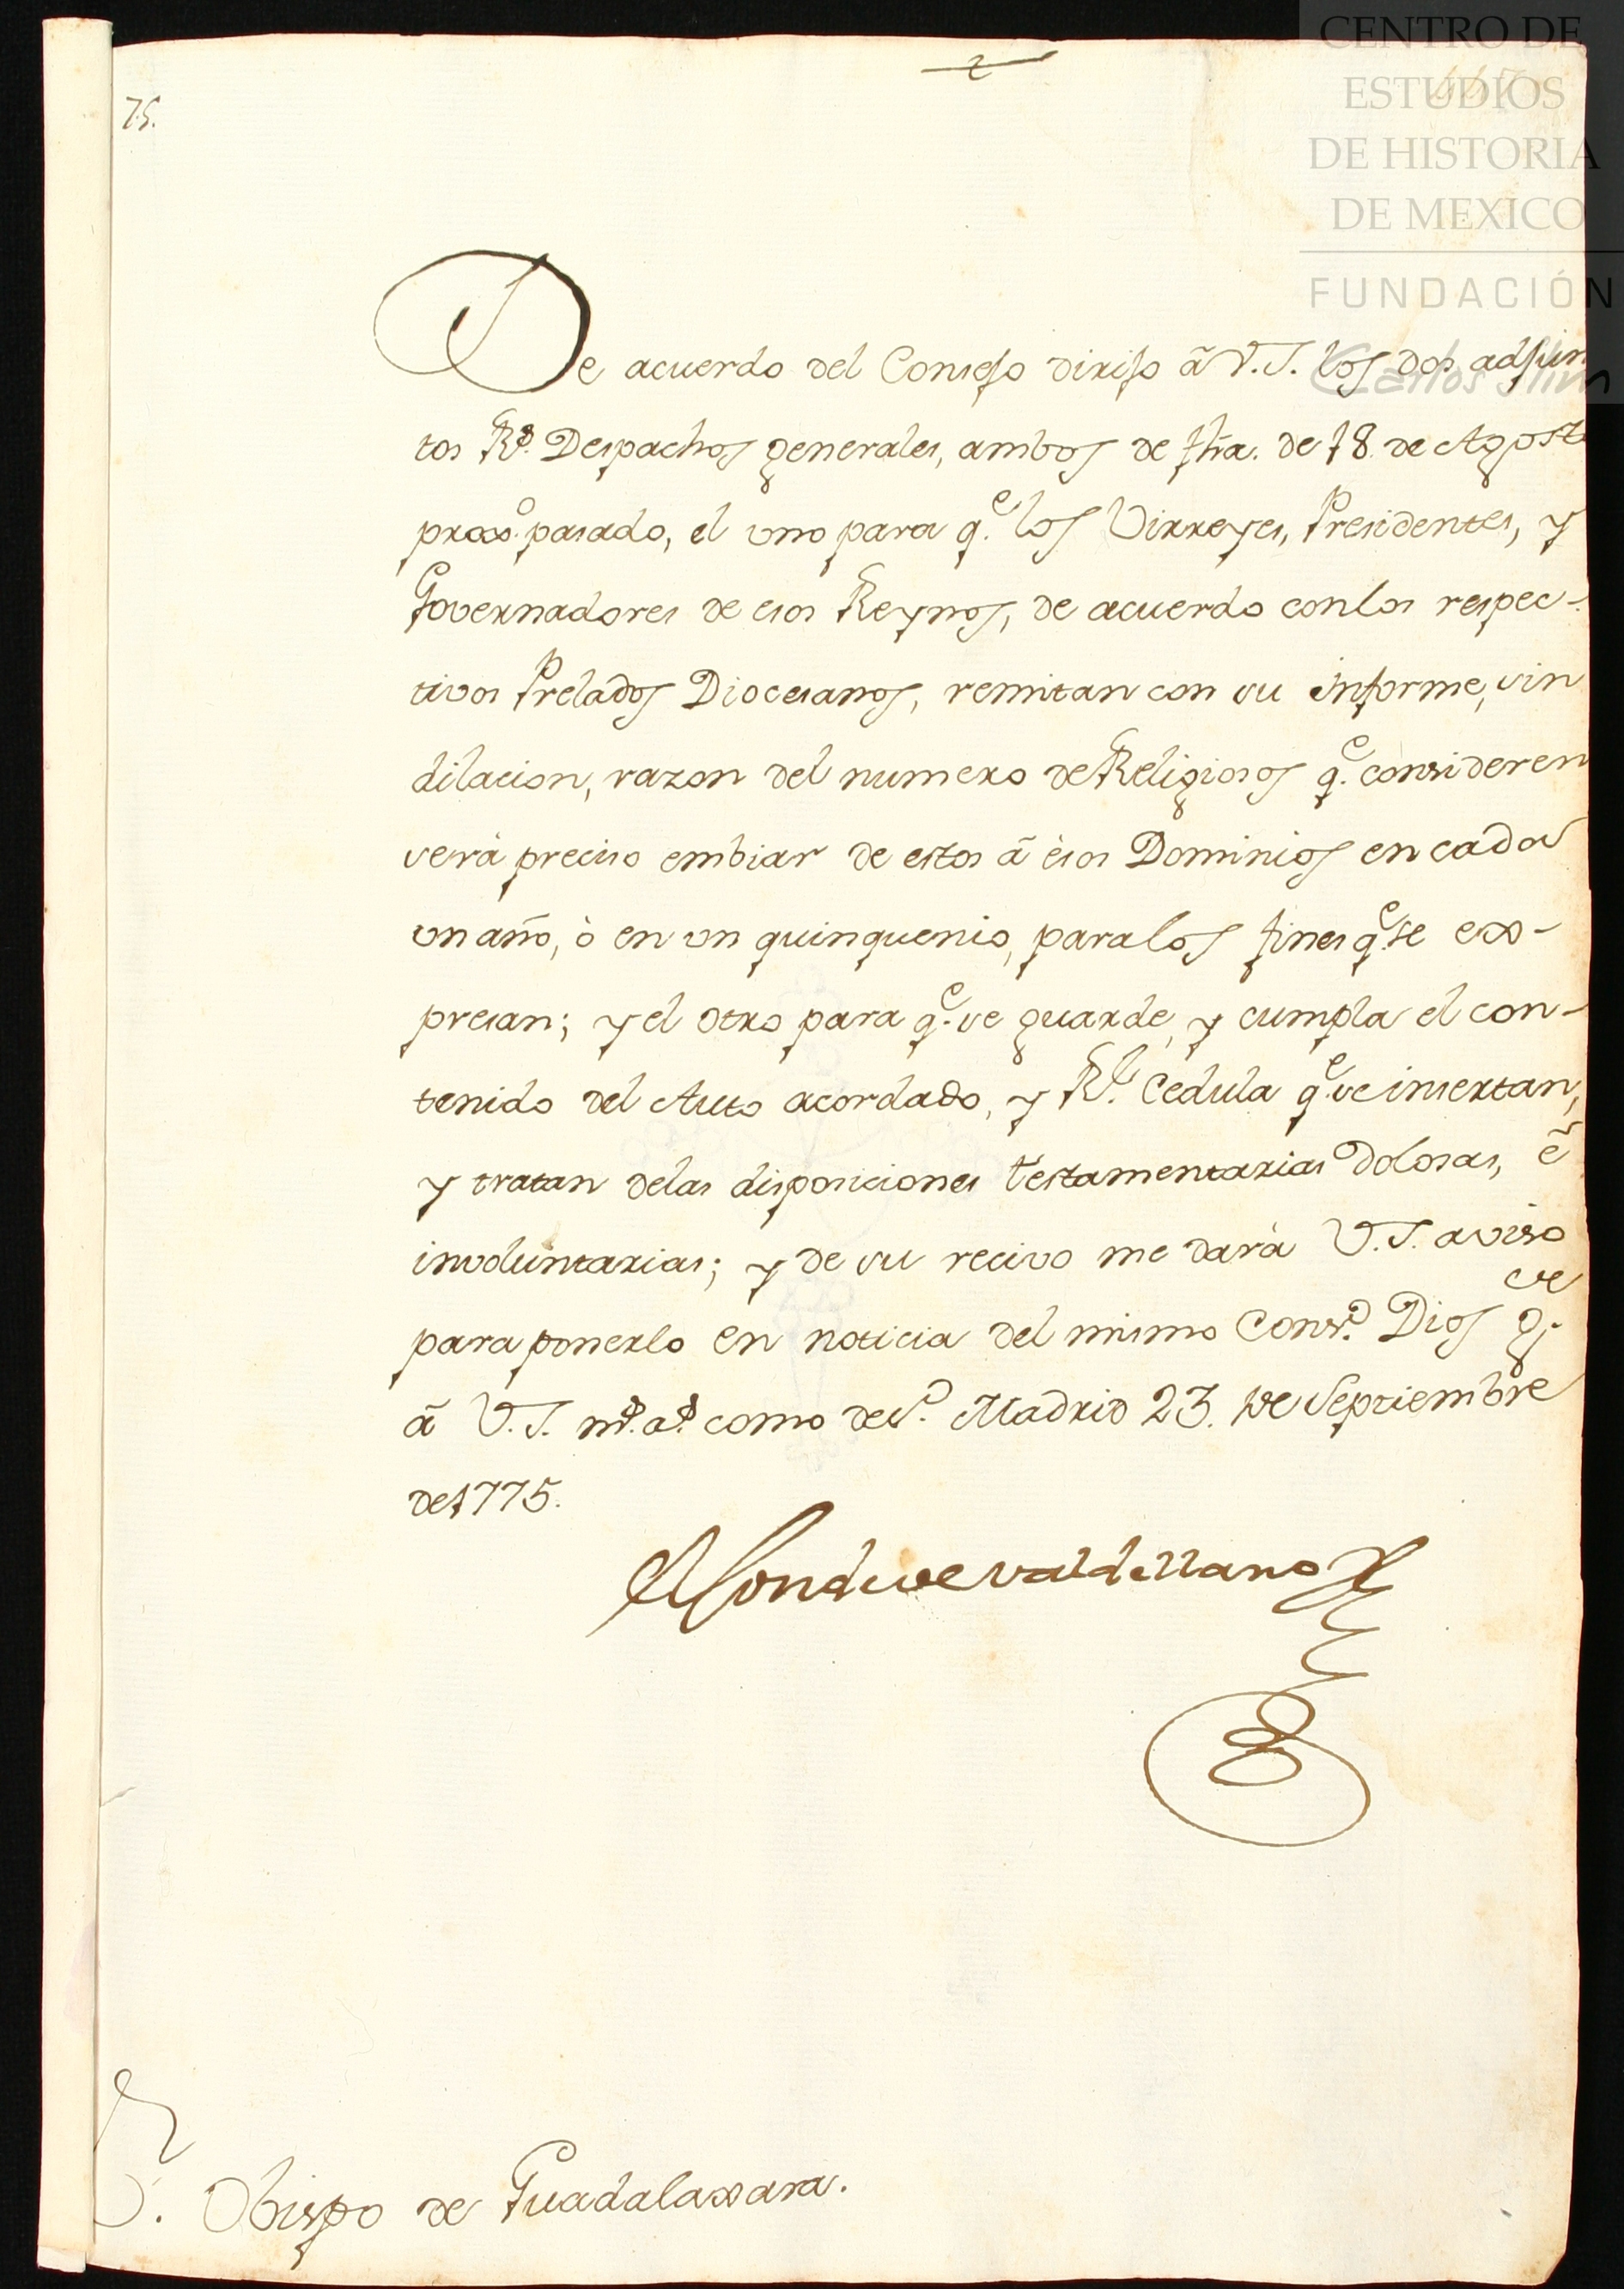 CENTRO DE
ESTUDIOS
DE HISTORIA
DE MEXICO
FUNDACIÓN
Carlos Slim
75.
De acuerdo del Consejo dirijo â V.S. los dos adjun
tos Rs. Despachos generales, ambos de fha. de 18. de Agosto
proxo. pasado, el uno para qe. los Virreyes, Presidentes, y
Governadores de esos Reynos, de acuerdo con los respec-
tivos Prelados Diocesanos, remitan con su informe, sin
dilacion, razon del numero de Religiosos qe. consideren
será preciso embiar de estos â ésos Dominios en cada
un año, ò en un quinquenio, para los fines qe. se ex-
presan; y el otro para qe. se guarde, y cumpla el con-
tenido del Auto acordado, y Rl. Cedula qe. se insertan,
y tratan delas disposiciones testamentarias dolosas, ê
involuntarias; y de su recivo me dará V.S. aviso
para ponerlo en noticia del mismo Conso. Dios gue.
â V.S. ms. as. como deso. Madrid 23. de Septiembre
de 1775.
El Conde de Valdellano
S. Obispo de Guadalaxara.